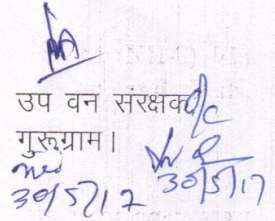 उप वन संरक्षक
गुरूग्राम।
30/5/17 30/5/17